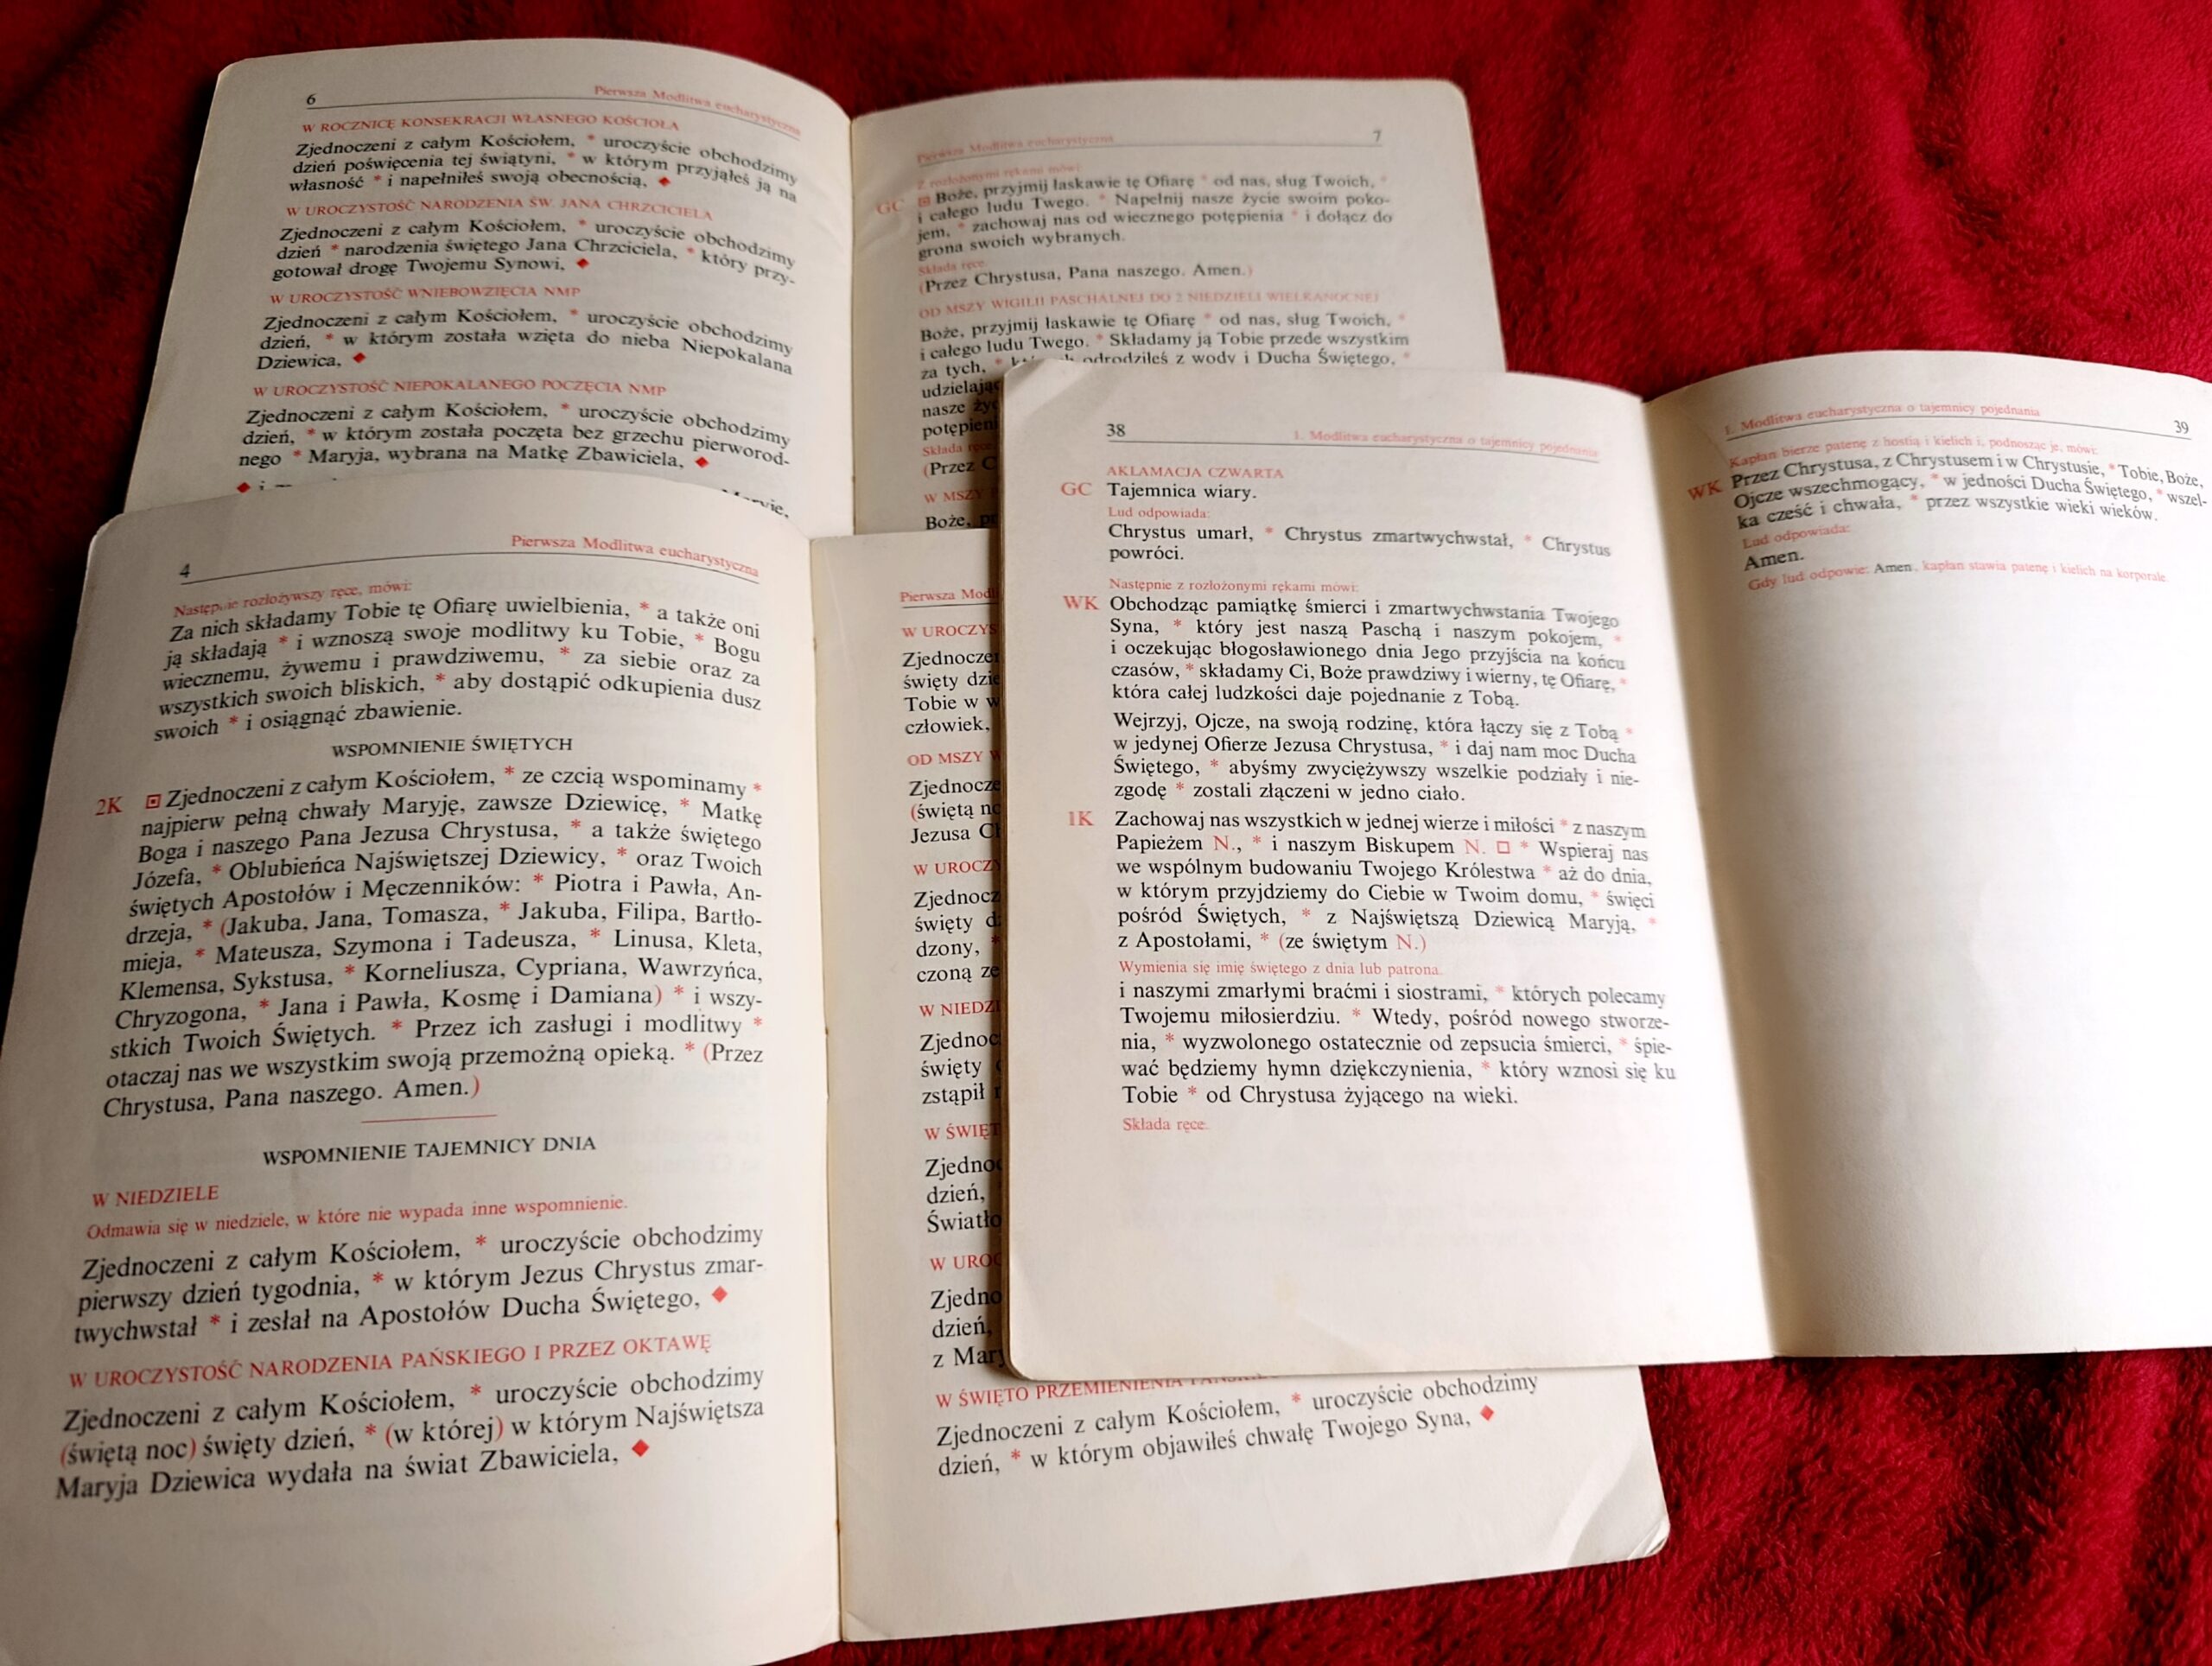 6 Pierwsza Modlitwa eucharystyczna
W ROCZNICĘ KONSEKRACJI WŁASNEGO KOŚCIOŁA
Zjednoczeni z całym Kościołem, * uroczyście obchodzimy
dzień poświęcenia tej świątyni, * w którym przyjąłeś ją na
własność * i napełniłeś swoją obecnością, ◆
W UROCZYSTOŚĆ NARODZENIA ŚW. JANA CHRZCICIELA
Zjednoczeni z całym Kościołem, * uroczyście obchodzimy
dzień * narodzenia świętego Jana Chrzciciela, * który przy-
gotował drogę Twojemu Synowi, ◆
W UROCZYSTOŚĆ WNIEBOWZIĘCIA NMP
Zjednoczeni z całym Kościołem, * uroczyście obchodzimy
dzień, * w którym została wzięta do nieba Niepokalana
Dziewica, ◆
W UROCZYSTOŚĆ NIEPOKALANEGO POCZĘCIA NMP
Zjednoczeni z całym Kościołem, * uroczyście obchodzimy
dzień, * w którym została poczęta bez grzechu pierworod-
nego * Maryja, wybrana na Matkę Zbawiciela, ◆
◆ i
Pierwsza Modlitwa eucharystyczna 7
Z rozłożonymi rękami mówi:
GC Boże, przyjmij łaskawie tę Ofiarę * od nas, sług Twoich, *
i całego ludu Twego. * Napełnij nasze życie swoim poko-
jem, * zachowaj nas od wiecznego potępienia * i dołącz do
grona swoich wybranych.
Składa ręce.
(Przez Chrystusa, Pana naszego. Amen.)
OD MSZY WIGILII PASCHALNEJ DO 2 NIEDZIELI WIELKANOCNEJ
Boże, przyjmij łaskawie tę Ofiarę * od nas, sług Twoich, *
i całego ludu Twego. * Składamy ją Tobie przede wszystkim
za tych, * odrodziłeś z wody i Ducha Świętego, *
udzielając
nasze
Składa
(Przez
W MSZY
Boże,
4 Pierwsza Modlitwa eucharystyczna
Następnie rozłożywszy ręce, mówi:
Za nich składamy Tobie tę Ofiarę uwielbienia, * a także oni
ją składają * i wznoszą swoje modlitwy ku Tobie, * Bogu
wiecznemu, żywemu i prawdziwemu, * za siebie oraz za
wszystkich swoich bliskich, * aby dostąpić odkupienia dusz
swoich * i osiągnąć zbawienie.
WSPOMNIENIE ŚWIĘTYCH
2K Zjednoczeni z całym Kościołem, * ze czcią wspominamy *
najpierw pełną chwały Maryję, zawsze Dziewicę, * Matkę
Boga i naszego Pana Jezusa Chrystusa, * a także świętego
Józefa, * Oblubieńca Najświętszej Dziewicy, * oraz Twoich
świętych Apostołów i Męczenników: * Piotra i Pawła, An-
drzeja, * (Jakuba, Jana, Tomasza, * Jakuba, Filipa, Bartło-
mieja, * Mateusza, Szymona i Tadeusza, * Linusa, Kleta,
Klemensa, Sykstusa, * Korneliusza, Cypriana, Wawrzyńca,
Chryzogona, * Jana i Pawła, Kosmę i Damiana) * i wszy-
stkich Twoich Świętych. * Przez ich zasługi i modlitwy *
otaczaj nas we wszystkim swoją przemożną opieką. * (Przez
Chrystusa, Pana naszego. Amen.)
WSPOMNIENIE TAJEMNICY DNIA
W NIEDZIELE
Odmawia się w niedziele, w które nie wypada inne wspomnienie.
Zjednoczeni z całym Kościołem, * uroczyście obchodzimy
pierwszy dzień tygodnia, * w którym Jezus Chrystus zmar-
twychwstał * i zesłał na Apostołów Ducha Świętego, ◆
W UROCZYSTOŚĆ NARODZENIA PAŃSKIEGO I PRZEZ OKTAWĘ
Zjednoczeni z całym Kościołem, * uroczyście obchodzimy
(świętą noc) święty dzień, * (w której) w którym Najświętsza
Maryja Dziewica wydała na świat Zbawiciela, ◆
Pierwsza
W
święty
Tobie w
człowiek,
OD MSZY
(świętą
Jezusa
W
święty
dzony,
czoną
W
święty
zstąpił
W
dzień,
W
dzień,
z
W ŚWIĘTO PRZEMIENIENIA
Zjednoczeni z całym Kościołem, * uroczyście obchodzimy
dzień, * w którym objawiłeś chwałę Twojego Syna, ◆
38 1. Modlitwa eucharystyczna o tajemnicy pojednania
AKLAMACJA CZWARTA
GC Tajemnica wiary.
Lud odpowiada:
Chrystus umarł, * Chrystus zmartwychwstał, * Chrystus
powróci.
Następnie z rozłożonymi rękami mówi:
WK Obchodząc pamiątkę śmierci i zmartwychwstania Twojego
Syna, * który jest naszą Paschą i naszym pokojem, *
i oczekując błogosławionego dnia Jego przyjścia na końcu
czasów, * składamy Ci, Boże prawdziwy i wierny, tę Ofiarę, *
która całej ludzkości daje pojednanie z Tobą.
Wejrzyj, Ojcze, na swoją rodzinę, która łączy się z Tobą *
w jedynej Ofierze Jezusa Chrystusa, * i daj nam moc Ducha
Świętego, * abyśmy zwyciężywszy wszelkie podziały i nie-
zgodę * zostali złączeni w jedno ciało.
1K Zachowaj nas wszystkich w jednej wierze i miłości * z naszym
Papieżem N., * i naszym Biskupem N. □ * Wspieraj nas
we wspólnym budowaniu Twojego Królestwa * aż do dnia,
w którym przyjdziemy do Ciebie w Twoim domu, * święci
pośród Świętych, * z Najświętszą Dziewicą Maryją, *
z Apostołami, * (ze świętym N.)
Wymienia się imię świętego z dnia lub patrona.
i naszymi zmarłymi braćmi i siostrami, * których polecamy
Twojemu miłosierdziu. * Wtedy, pośród nowego stworze-
nia, * wyzwolonego ostatecznie od zepsucia śmierci, * śpie-
wać będziemy hymn dziękczynienia, * który wznosi się ku
Tobie * od Chrystusa żyjącego na wieki.
Składa ręce.
1. Modlitwa eucharystyczna o tajemnicy pojednania 39
Kapłan bierze patenę z hostią i kielich i, podnosząc je, mówi:
WK Przez Chrystusa, z Chrystusem i w Chrystusie, * Tobie, Boże,
Ojcze wszechmogący, * w jedności Ducha Świętego, * wszel-
ka cześć i chwała, * przez wszystkie wieki wieków.
Lud odpowiada:
Amen.
Gdy lud odpowie: Amen, kapłan stawia patenę i kielich na korporale.